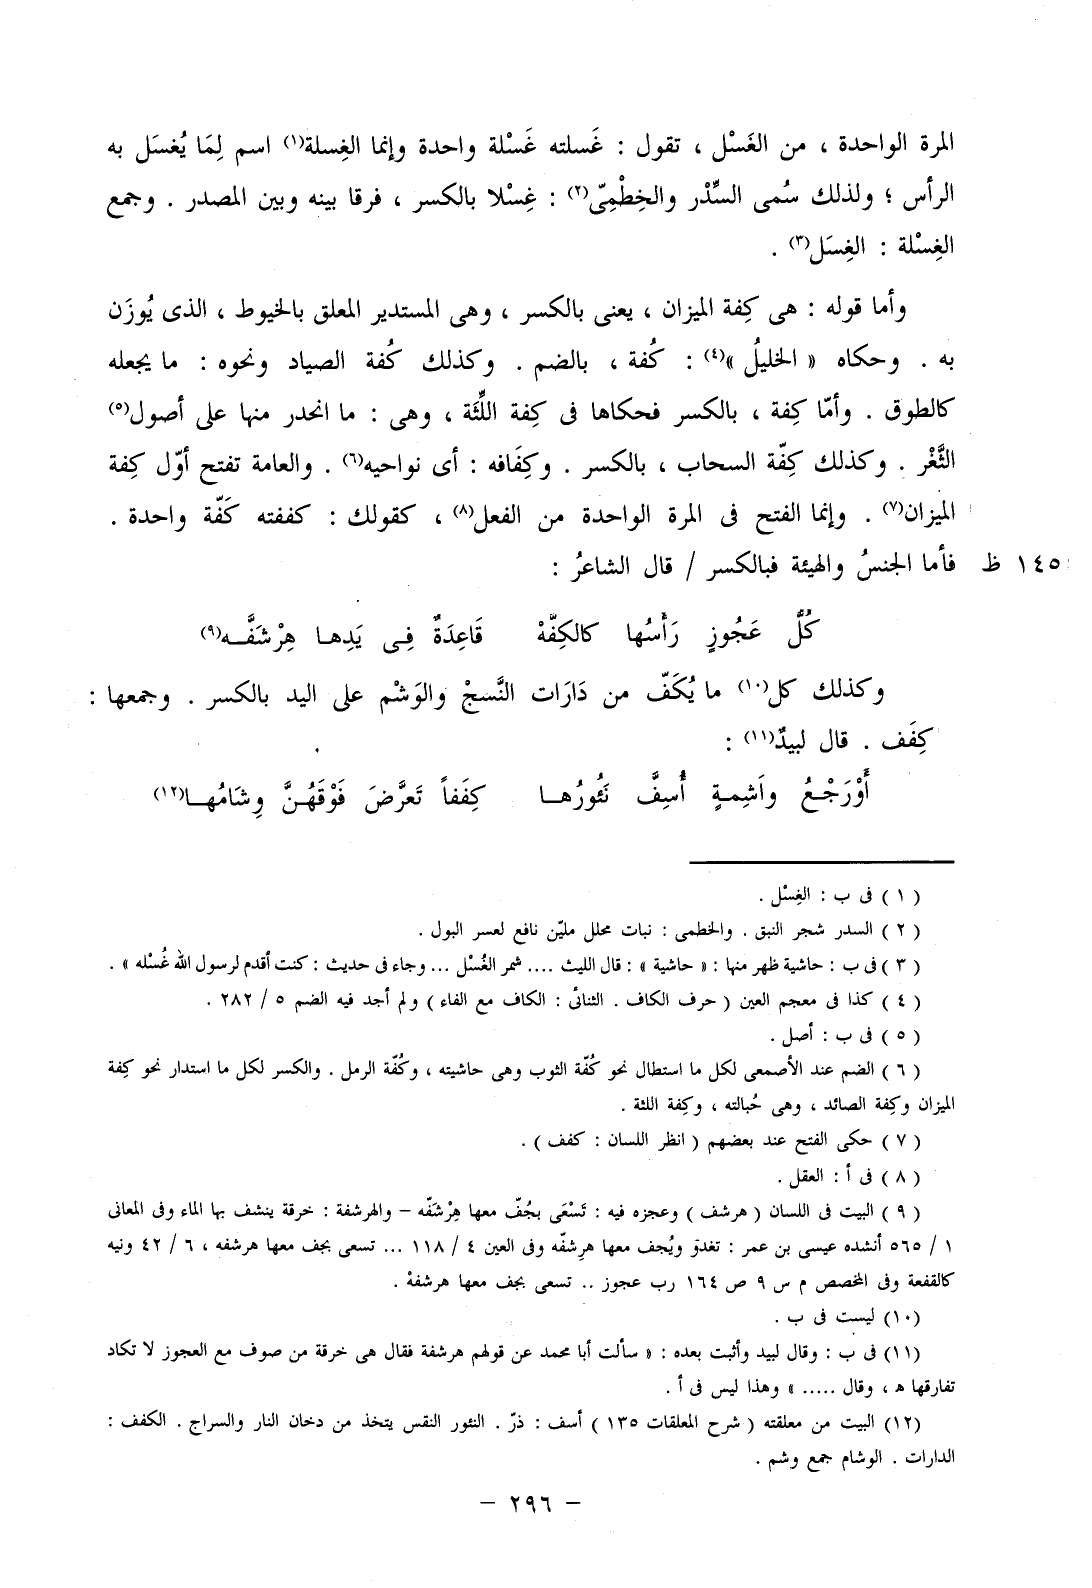 المرة الواحدة ، من الغَسْل ، تقول : غَسلته غَسْلة واحدة وإنما الغِسلة(١) اسم لِمَا يُغسَل به
الرأس ؛ ولذلك سُمى السِّدْر والخِطْمِىّ(٢) : غِسْلا بالكسر ، فرقا بينه وبين المصدر . وجمع
الغِسْلة : الغِسَل(٣) .
وأما قوله : هى كِفة الميزان ، يعنى بالكسر ، وهى المستدير المعلق بالخيوط ، الذى يُوزَن
به . وحكاه « الخليلُ »(٤) : كُفة ، بالضم . وكذلك كُفة الصياد ونحوه : ما يجعله
كالطوق . وأمّا كِفة ، بالكسر فحكاها فى كِفة اللِّثَة ، وهى : ما انحدر منها على أصول(٥)
الثَّغْر . وكذلك كِفّة السحاب ، بالكسر . وكِفَافه : أى نواحيه(٦) . والعامة تفتح أوّل كِفة
الميزان(٧) . وإنما الفتح فى المرة الواحدة من الفعل(٨) ، كقولك : كففته كَفّة واحدة .
١٤٥ ظ فأما الجنسُ والهيئة فبالكسر / قال الشاعرُ :
كُلَّ عَجُوزٍ رَأْسُها كالكِفَّهْ قَاعِدَةٌ فِـى يَدِهـا هِرْشَفَّــه(٩)
وكذلك كل(١٠) ما يُكَفّ من دَارَات النَّسجْ والوَشْم على اليد بالكسر . وجمعها :
كِفَف . قال لبيدٌ(١١) :
أَوْرَجْـعُ واَشِمـةٍ أُسِفَّ نَئُورُهـا كِفَفاً تَعرَّضَ فَوْقَهُـنَّ وِشَامُهـا(١٢)
( ١ ) فى ب : الغِسْل .
( ٢ ) السدر شجر النبق . والخطمى : نبات محلل مليّن نافع لعسر البول .
( ٣ ) فى ب : حاشية ظهر منها : « حاشية » : قال الليث .... شمر الغُسْل ... وجاء فى حديث : كنت أقدم لرسول الله غُسْله » .
( ٤ ) كذا فى معجم العين ( حرف الكاف . الثنائى : الكاف مع الفاء ) ولم أجد فيه الضم ٥ / ٢٨٢ .
( ٥ ) فى ب : أصل .
( ٦ ) الضم عند الأصمعى لكل ما استطال نحو كُفّة الثوب وهى حاشيته ، وكُفّة الرمل . والكسر لكل ما استدار نحو كِفة
الميزان وكِفة الصائد ، وهى حُبالته ، وكِفة اللثة .
( ٧ ) حكى الفتح عند بعضهم ( انظر اللسان : كفف ) .
( ٨ ) فى أ : العقل .
( ٩ ) البيت فى اللسان ( هرشف ) وعجزه فيه : تَسْعَى بجُفّ معها هِرْشَفّه – والهرشفة : خرقة ينشف بها الماء وفى المعانى
١ / ٥٦٥ أنشده عيسى بن عمر : تغدو ويُجف معها هرِشفّه وفى العين ٤ / ١١٨ ... تسعى بجف معها هرشفه ، ٦ / ٤٢ ونيه
كالقفعة وفى المخصص م س ٩ ص ١٦٤ رب عجوز .. تسعى بجف معها هرشفهْ .
(١٠) ليست فى ب .
(١١) فى ب : وقال لبيد وأثبت بعده : « سألت أبا محمد عن قولهم هرشفة فقال هى خرقة من صوف مع العجوز لا تكاد
تفارقها ﻫ ، وقال ..... » وهذا ليس فى أ .
(١٢) البيت من معلقته ( شرح المعلقات ١٣٥ ) أسف : ذرّ . النئور النقس يتخذ من دخان النار والسراج . الكفف :
الدارات . الوشام جمع وشم .
– ٢٩٦ –